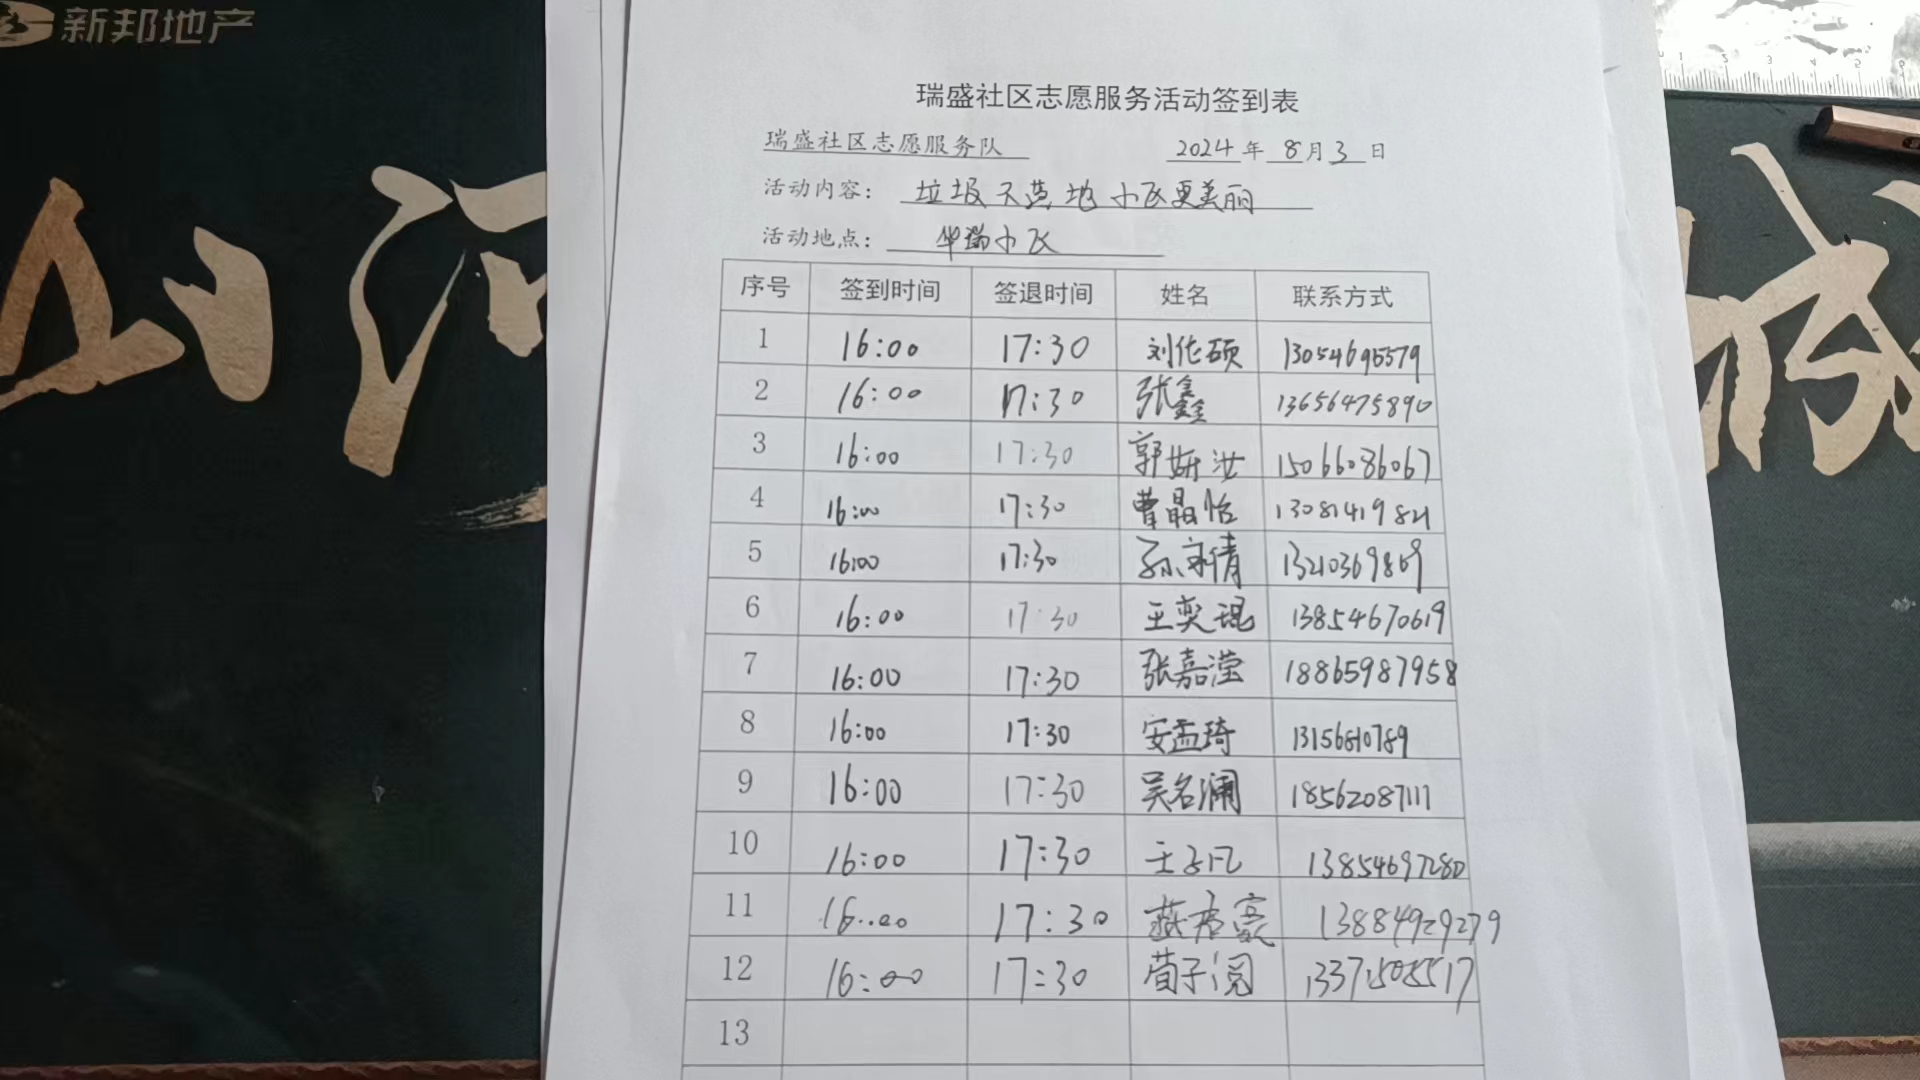 新邦地产
山河
城
瑞盛社区志愿服务活动签到表
瑞盛社区志愿服务队 2024年8月3日
活动内容: 垃圾不落地 小区更美丽
活动地点: 华瑞小区
序号 签到时间 签退时间 姓名 联系方式
1 16:00 17:30 刘佐硕 13054695579
2 16:00 17:30 张鑫 13656475890
3 16:00 17:30 郭妍汝 15066086067
4 16:00 17:30 曹晶怡 13081419821
5 16:00 17:30 孙倩 13210369869
6 16:00 17:30 王奕琨 13854670619
7 16:00 17:30 张嘉滢 18865987958
8 16:00 17:30 安孟琦 13156810789
9 16:00 17:30 吴名澜 18562087111
10 16:00 17:30 王 13854697280
11 16:00 17:30 豪 13884929279
12 16:00 17:30 荀子阅 13371505517
13